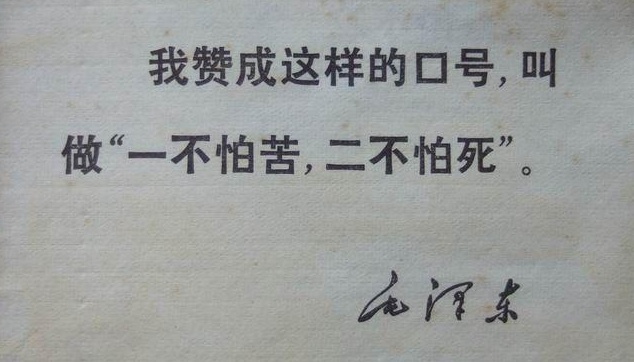 我赞成这样的口号，叫
做“一不怕苦，二不怕死”。
毛泽东